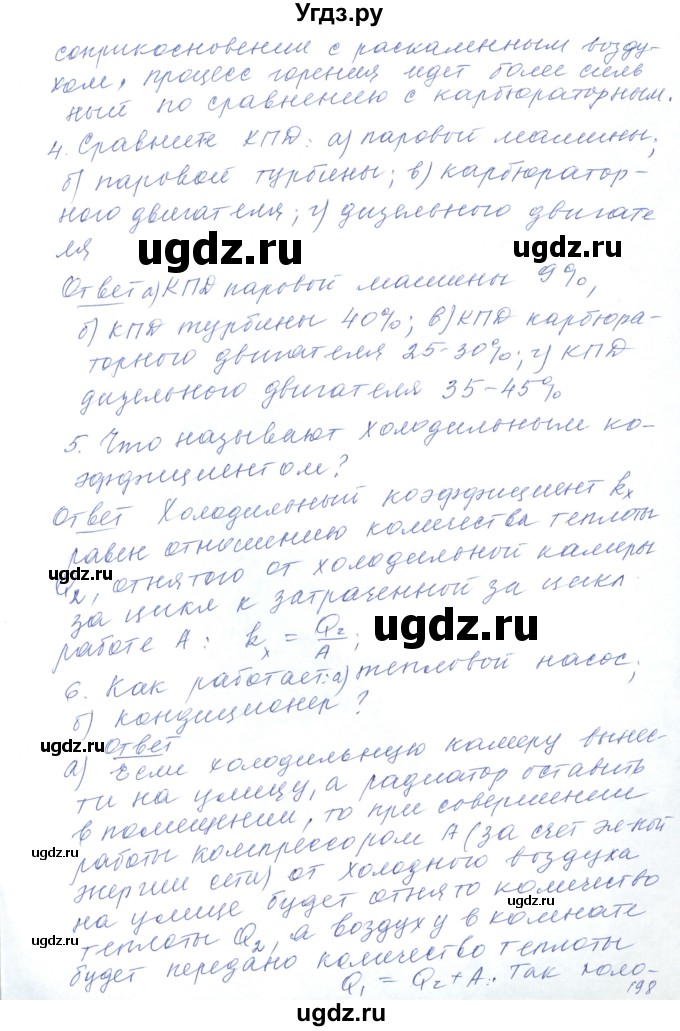 Угдз.ру
соприкосновении с раскаленным возду-
хом, процесс горения идет более силь
ный по сравнению с карбюраторным.
4. Сравните КПД: а) паровой машины;
б) паровой турбины; в) карбюратор-
ного двигателя; г) дизельного двигате
ля
ugdz.ru ugdz.ru
Ответ а) КПД паровой машины 9%,
б) КПД турбины 40%; в) КПД карбюра-
торного двигателя 25-30%; г) КПД
дизельного двигателя 35-45%
5. Что называют холодильным ко-
эффициентом?
Ответ Холодильный коэффициент kх
равен отношению количества теплоты
ugdz.ru
Q2, отнятого от холодильной камеры
за цикл к затраченной за цикл
работе А: kх = Q2/A;
ugdz.ru
6. Как работает: а) тепловой насос;
б) кондиционер?
ugdz.ru
Ответ
а) Если холодильную камеру вынес-
ти на улицу, а радиатор оставить
в помещении, то при совершении
работы компрессором А (за счет эл-ной
ugdz.ru
энергии сети) от холодного воздуха
на улице будет отнято количество
теплоты Q2, а воздуху в комнате
ugdz.ru
будет передано количество теплоты
Q1 = Q2 + A. Так холо-
198